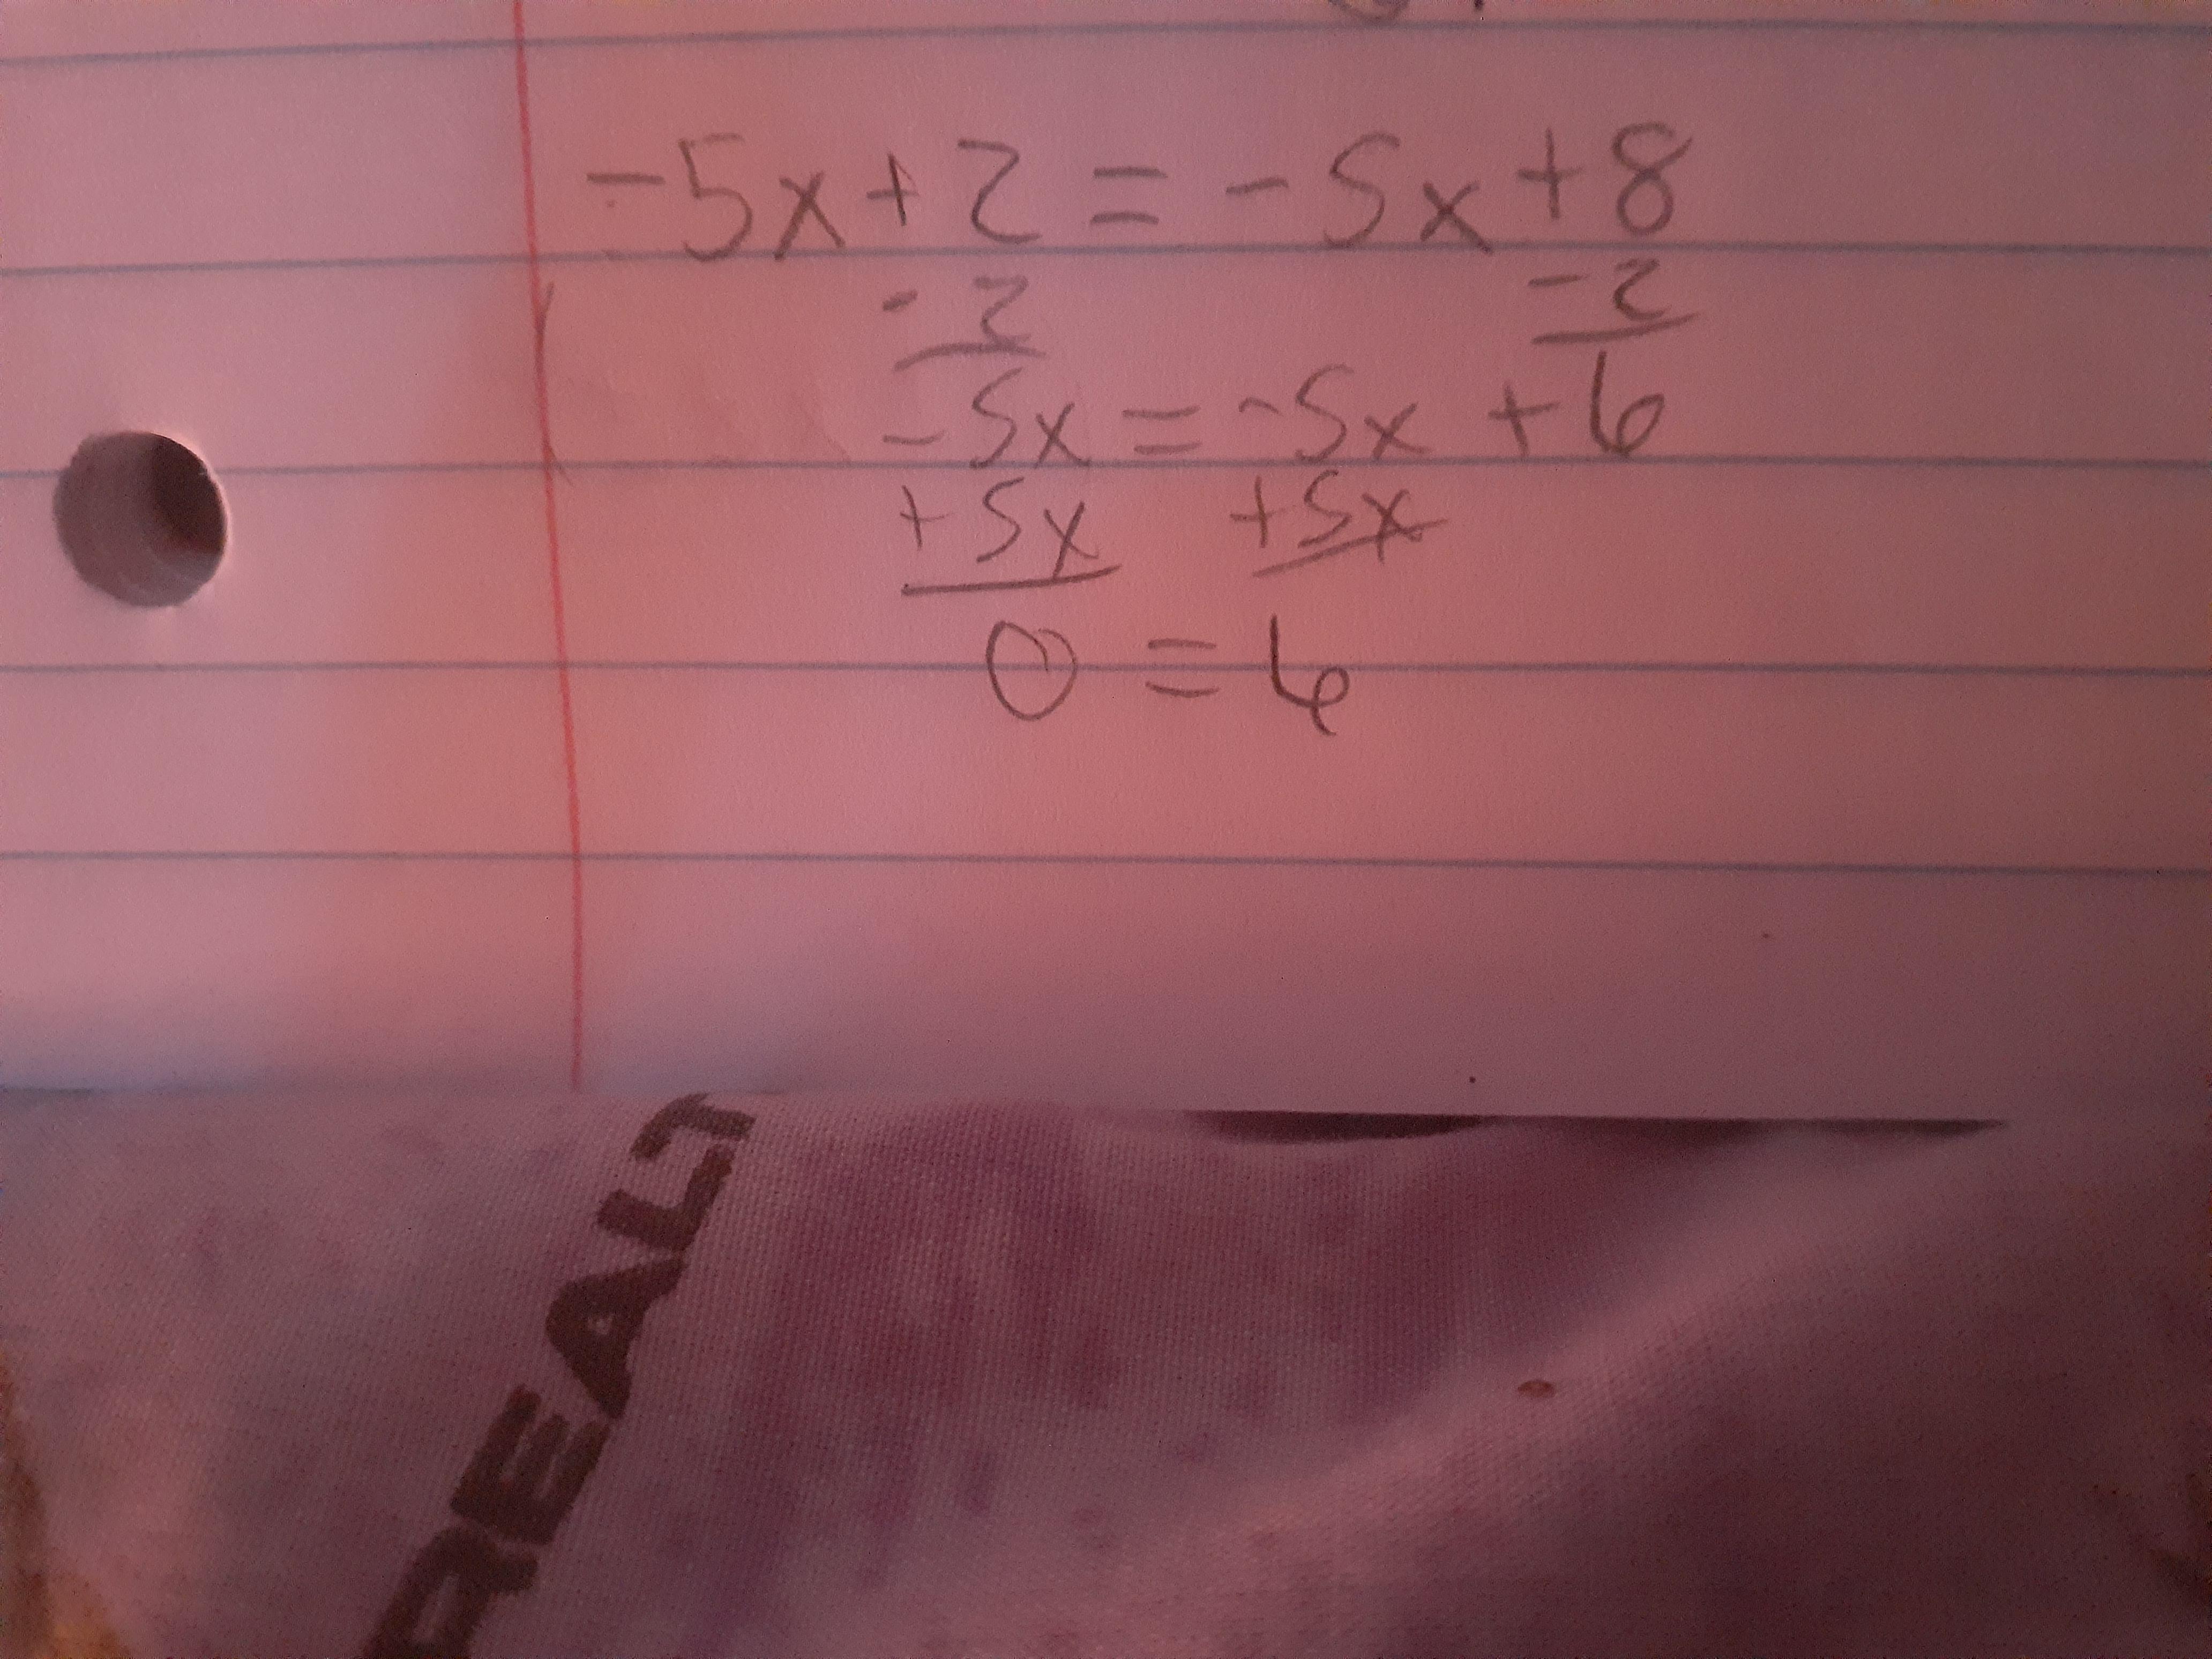 -5x+2 = -5x+8
-2 -2
-5x = -5x +6
+5x +5x
0 = 6
REAL